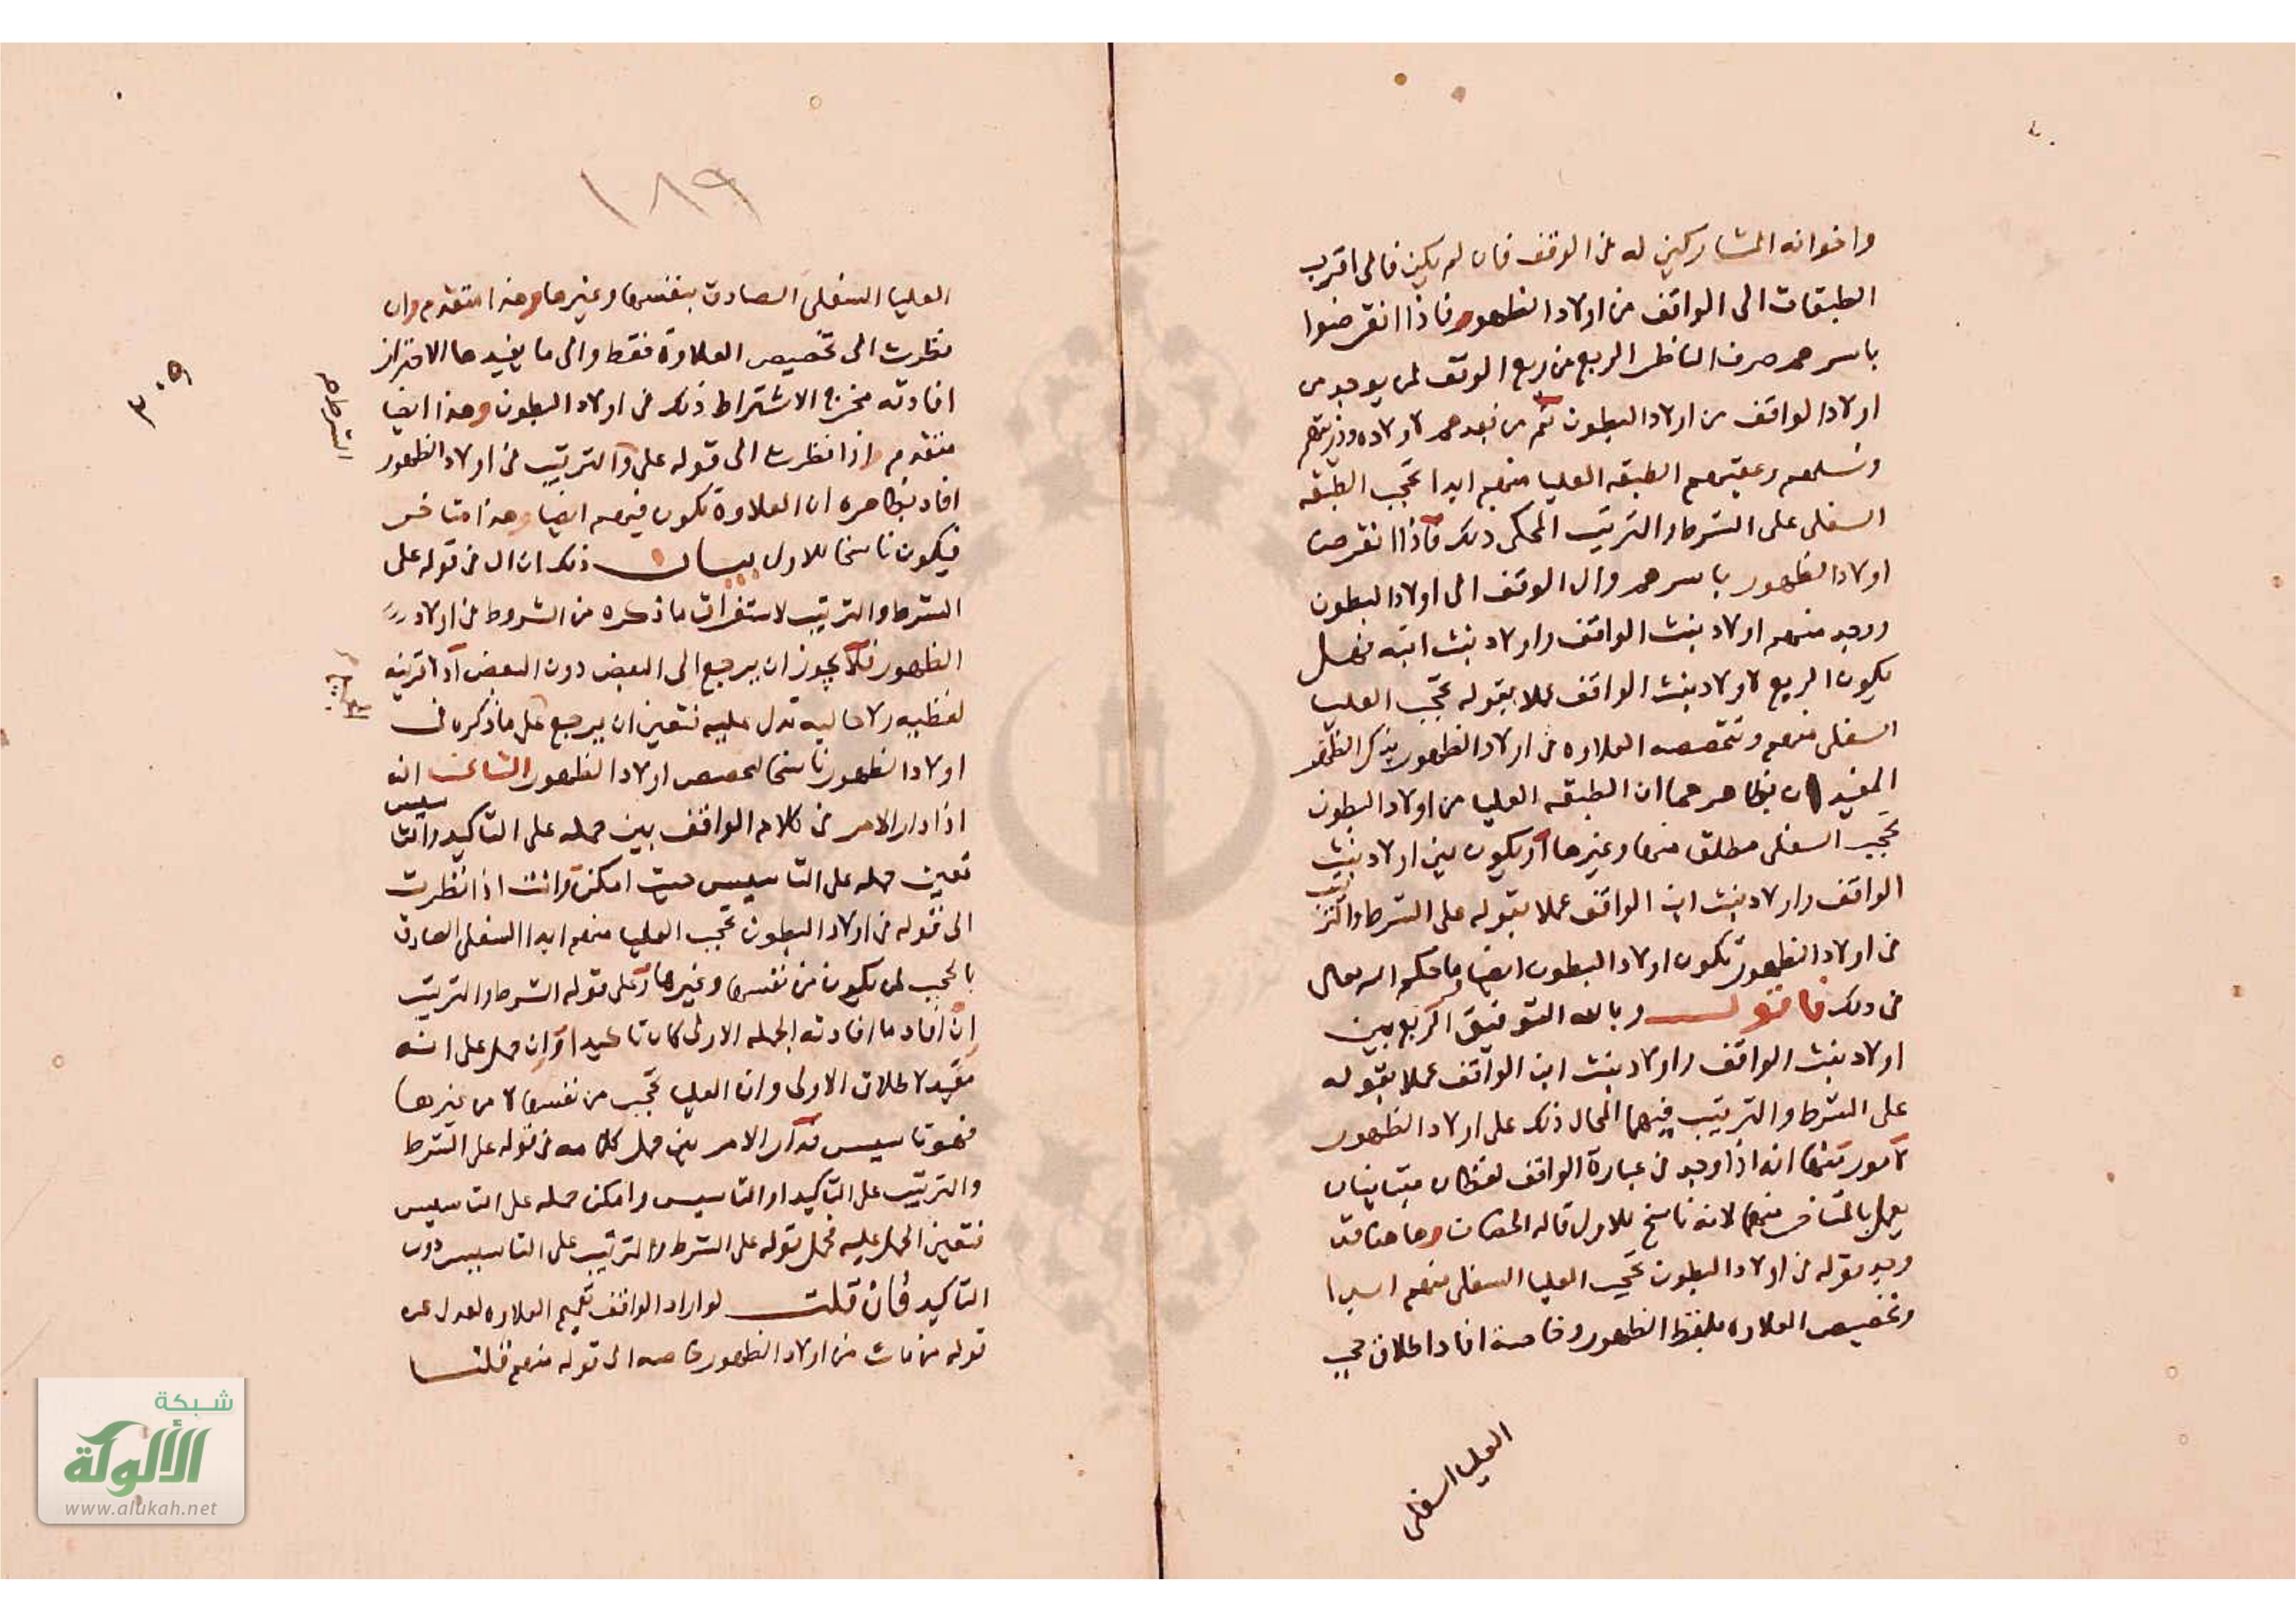 واخوانه المشاركين له في الوقف فان لم يكن فالى اقرب
الطبقات الى الواقف من اولاد الظهور فاذا انقرضوا
باسرهم صرف الناظر الريع من ريع الوقف لمن يوجد من
اولاد الواقف من اولاد البطون ثم من بعدهم لاولاده وذريتهم
ونسلهم وعقبهم الطبقه العليا منهم ابدا تحجب الطبقه
السفلى على الشرط والترتيب المحكى ذلك فاذا انقرضت
اولاد الظهور باسرهم وال الوقف الى اولاد البطون
ووجد منهم اولاد بنت الواقف واولاد بنت ابنه فهل
يكون الريع لاولاد بنت الواقف عملا بقوله تحجب العليا
السفلى منهم وتخصصه العلاوه في اولاد الظهور بذكر الظهور
المفيدان بظاهرهما ان الطبقه العليا من اولاد البطون
تحجب السفلى مطلق منها وغيرها او يكون بين اولاد بنت
الواقف واولاد بنت ابن الواقف عملا بقوله على الشرط والترتيب
في اولاد الظهور تكون اولاد البطون ايضا ما حكم الله تعالى
في ذلك فاقول وبالله التوفيق الريع بين
اولاد بنت الواقف واولاد بنت ابن الواقف عملا بقوله
على الشرط والترتيب فيهما المحال ذلك على اولاد الظهور
لامور منها انه اذا وجد في عبارة الواقف لفظان متباينان
يعمل بالمتاخر منهما لانه ناسخ للاول قاله الخصاف وها هنا قد
وجد قوله في اولاد البطون تحجب العليا السفلى منهم ابدا
وتخصيص العلاوه بلفظ الظهور وخاصة افاد اطلاق حجب
العليا السفلى
١٨٩
العليا السفلى الصادق بنفسها وغيرها وهذا متقدم وان
نظرت الى تخصيص العلاوة فقط والى ما يفيدها الاحتراز
افادته مخرج الاشتراط ذلك في اولاد البطون وهذا ايضا
متقدم واذا نظرت الى قوله على والترتيب في اولاد الظهور
الشرط صح
افاد بظاهره ان العلاوة تكون فيهم ايضا وهذا متاخر
فيكون ناسخا للاول بيان ذلك ان ال في قوله على
الشرط والترتيب لاستغراق ما ذكره من الشروط في اولاد
الظهور فلا يجوز ان يرجع الى البعض دون البعض اذ لا قرينه
لفظيه ولا حاليه تدل عليه فتعين ان يرجع كل ما ذكره في
اولاد الظهور ناسخا لتخصص اولاد الظهور الثاني انه
اذا دار الامر في كلام الواقف بين حمله على التاكيد والتاسيس
تعين حمله على التاسيس حيث امكن وانت اذا نظرت
الى قوله في اولاد البطون تحجب العليا منهم ابدا السفلى الصادق
بالحجب لمن يكون من نفسها وغيرها وعلى قوله الشرط والترتيب
ان افاد ما افادته الجمله الاولى كان تاكيدا وان حمل على انه
مقيد لاطلاق الاولى وان العليا تحجب من نفسها لا من غيرها
فهو تاسيس فدار الامر بين حمل كلامه في قوله على الشرط
والترتيب على التاكيد او التاسيس وامكن حمله على التاسيس
فتعين الحمل عليه فحمل قوله على الشرط والترتيب على التاسيس دون
التاكيد فان قلت لو اراد الواقف تعميم العلاوه لعدل عن
قوله من مات من اولاد الظهور خاصه الى قوله منهم قلنا
٣٠٩
شبكة
الألوكة
www.alukah.net